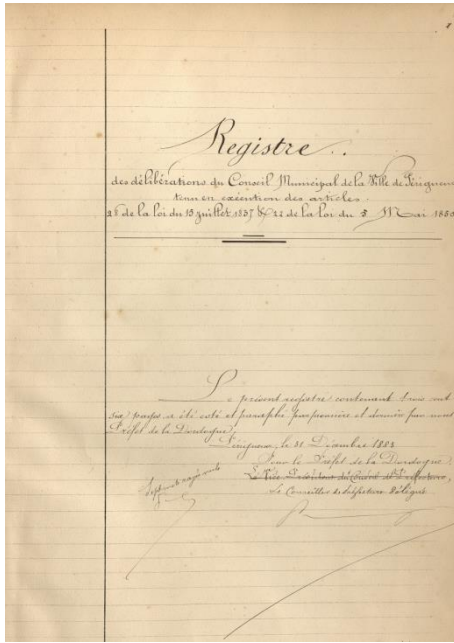 Registre
des délibérations du Conseil Municipal de la Ville de Périgueux
tenu en exécution des articles
28 de la loi du 18 juillet 1837 & 22 de la loi du 5 Mai 1855
Le présent registre contenant trois cent
six pages a été coté et paraphé par première et dernière par nous
Préfet de la Dordogne
Périgueux, le 31 Décembre 1883
Pour le Préfet de la Dordogne
Le Vice Président du Conseil de Préfecture,
Le Conseiller de Préfecture Délégué